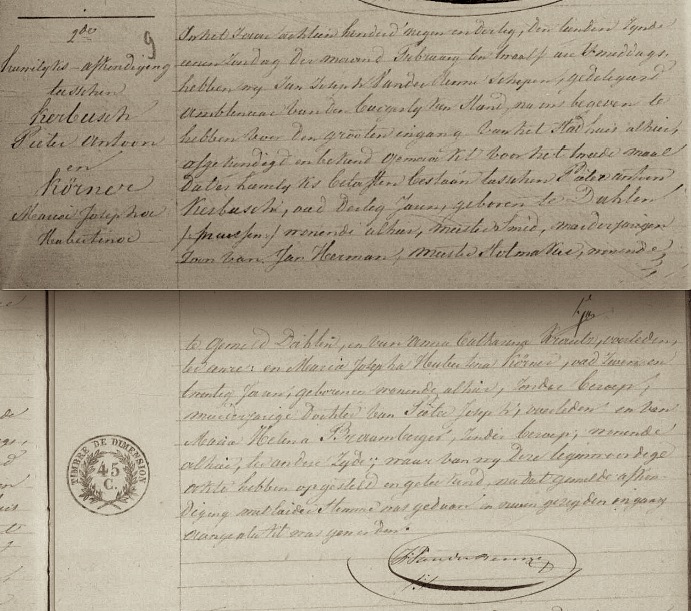 2de
9
huwelyks-afkondiging
tusschen
Kerbusch
Pieter Antoon
en
Körner
Maria Josepha
Hubertina
In het Jaar achtien honderd negen en dertig, den
Zondag der maand February ten twaalf ure 's middags
hebben wy Jan Joseph Schepen, gedelegeerd
ambtenaar van den Burgerly ken Stand, na ons begeven te
hebben voor den grooten ingang van het Stadhuis alhier,
afgekondigd en bekend gemaakt voor het tweede maal
dat er huwelyk is tusschen Pieter Antoon
Kerbusch, oud Dertig Jaren, geboren te Dahlen
/pruissen/ wonende alhier, meester Smid, meerderjarigen
zoon van Jan Herman, wonende
te Dahlen, en van Anna Catharina overleden,
ter eenre: en Maria Josepha Hubertina Körner, oud Twee en
twintig Jaren, geboren en wonende alhier, zonder beroep,
meerderjarige Dochter van Pieter Joseph, overleden en van
Maria Helena zonder beroep, wonende
alhier, ter andere Zyde; waar van wy deze tegenwoordige
akte hebben opgesteld en geteekend, na dat gemelde afkon-
diging met luider Stemme was gedaan en
aangeplakt was geworden.
TIMBRE DE DIMENSION
45
C.